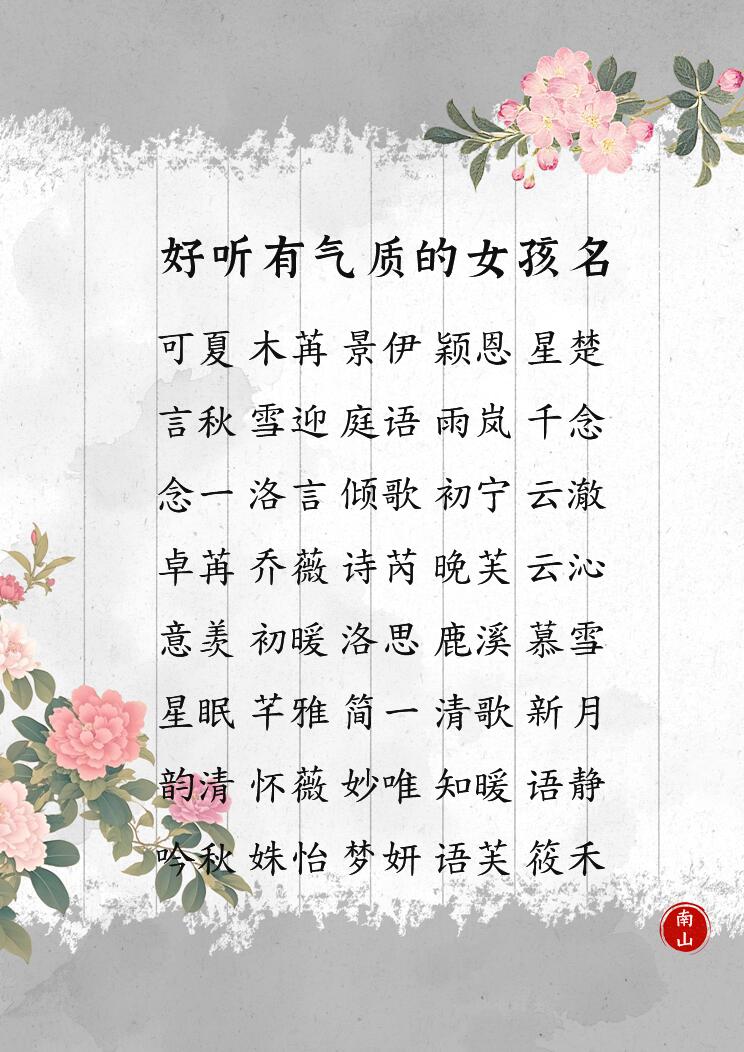 好听有气质的女孩名
可夏 木苒 景伊 颖恩 星楚
言秋 雪迎 庭语 雨岚 千念
念一 洛言 倾歌 初宁 云澈
卓苒 乔薇 诗芮 晚芙 云沁
意羡 初暖 洛思 鹿溪 慕雪
星眠 芊雅 简一 清歌 新月
韵清 怀薇 妙唯 知暖 语静
吟秋 姝怡 梦妍 语芙 筱禾
南
山